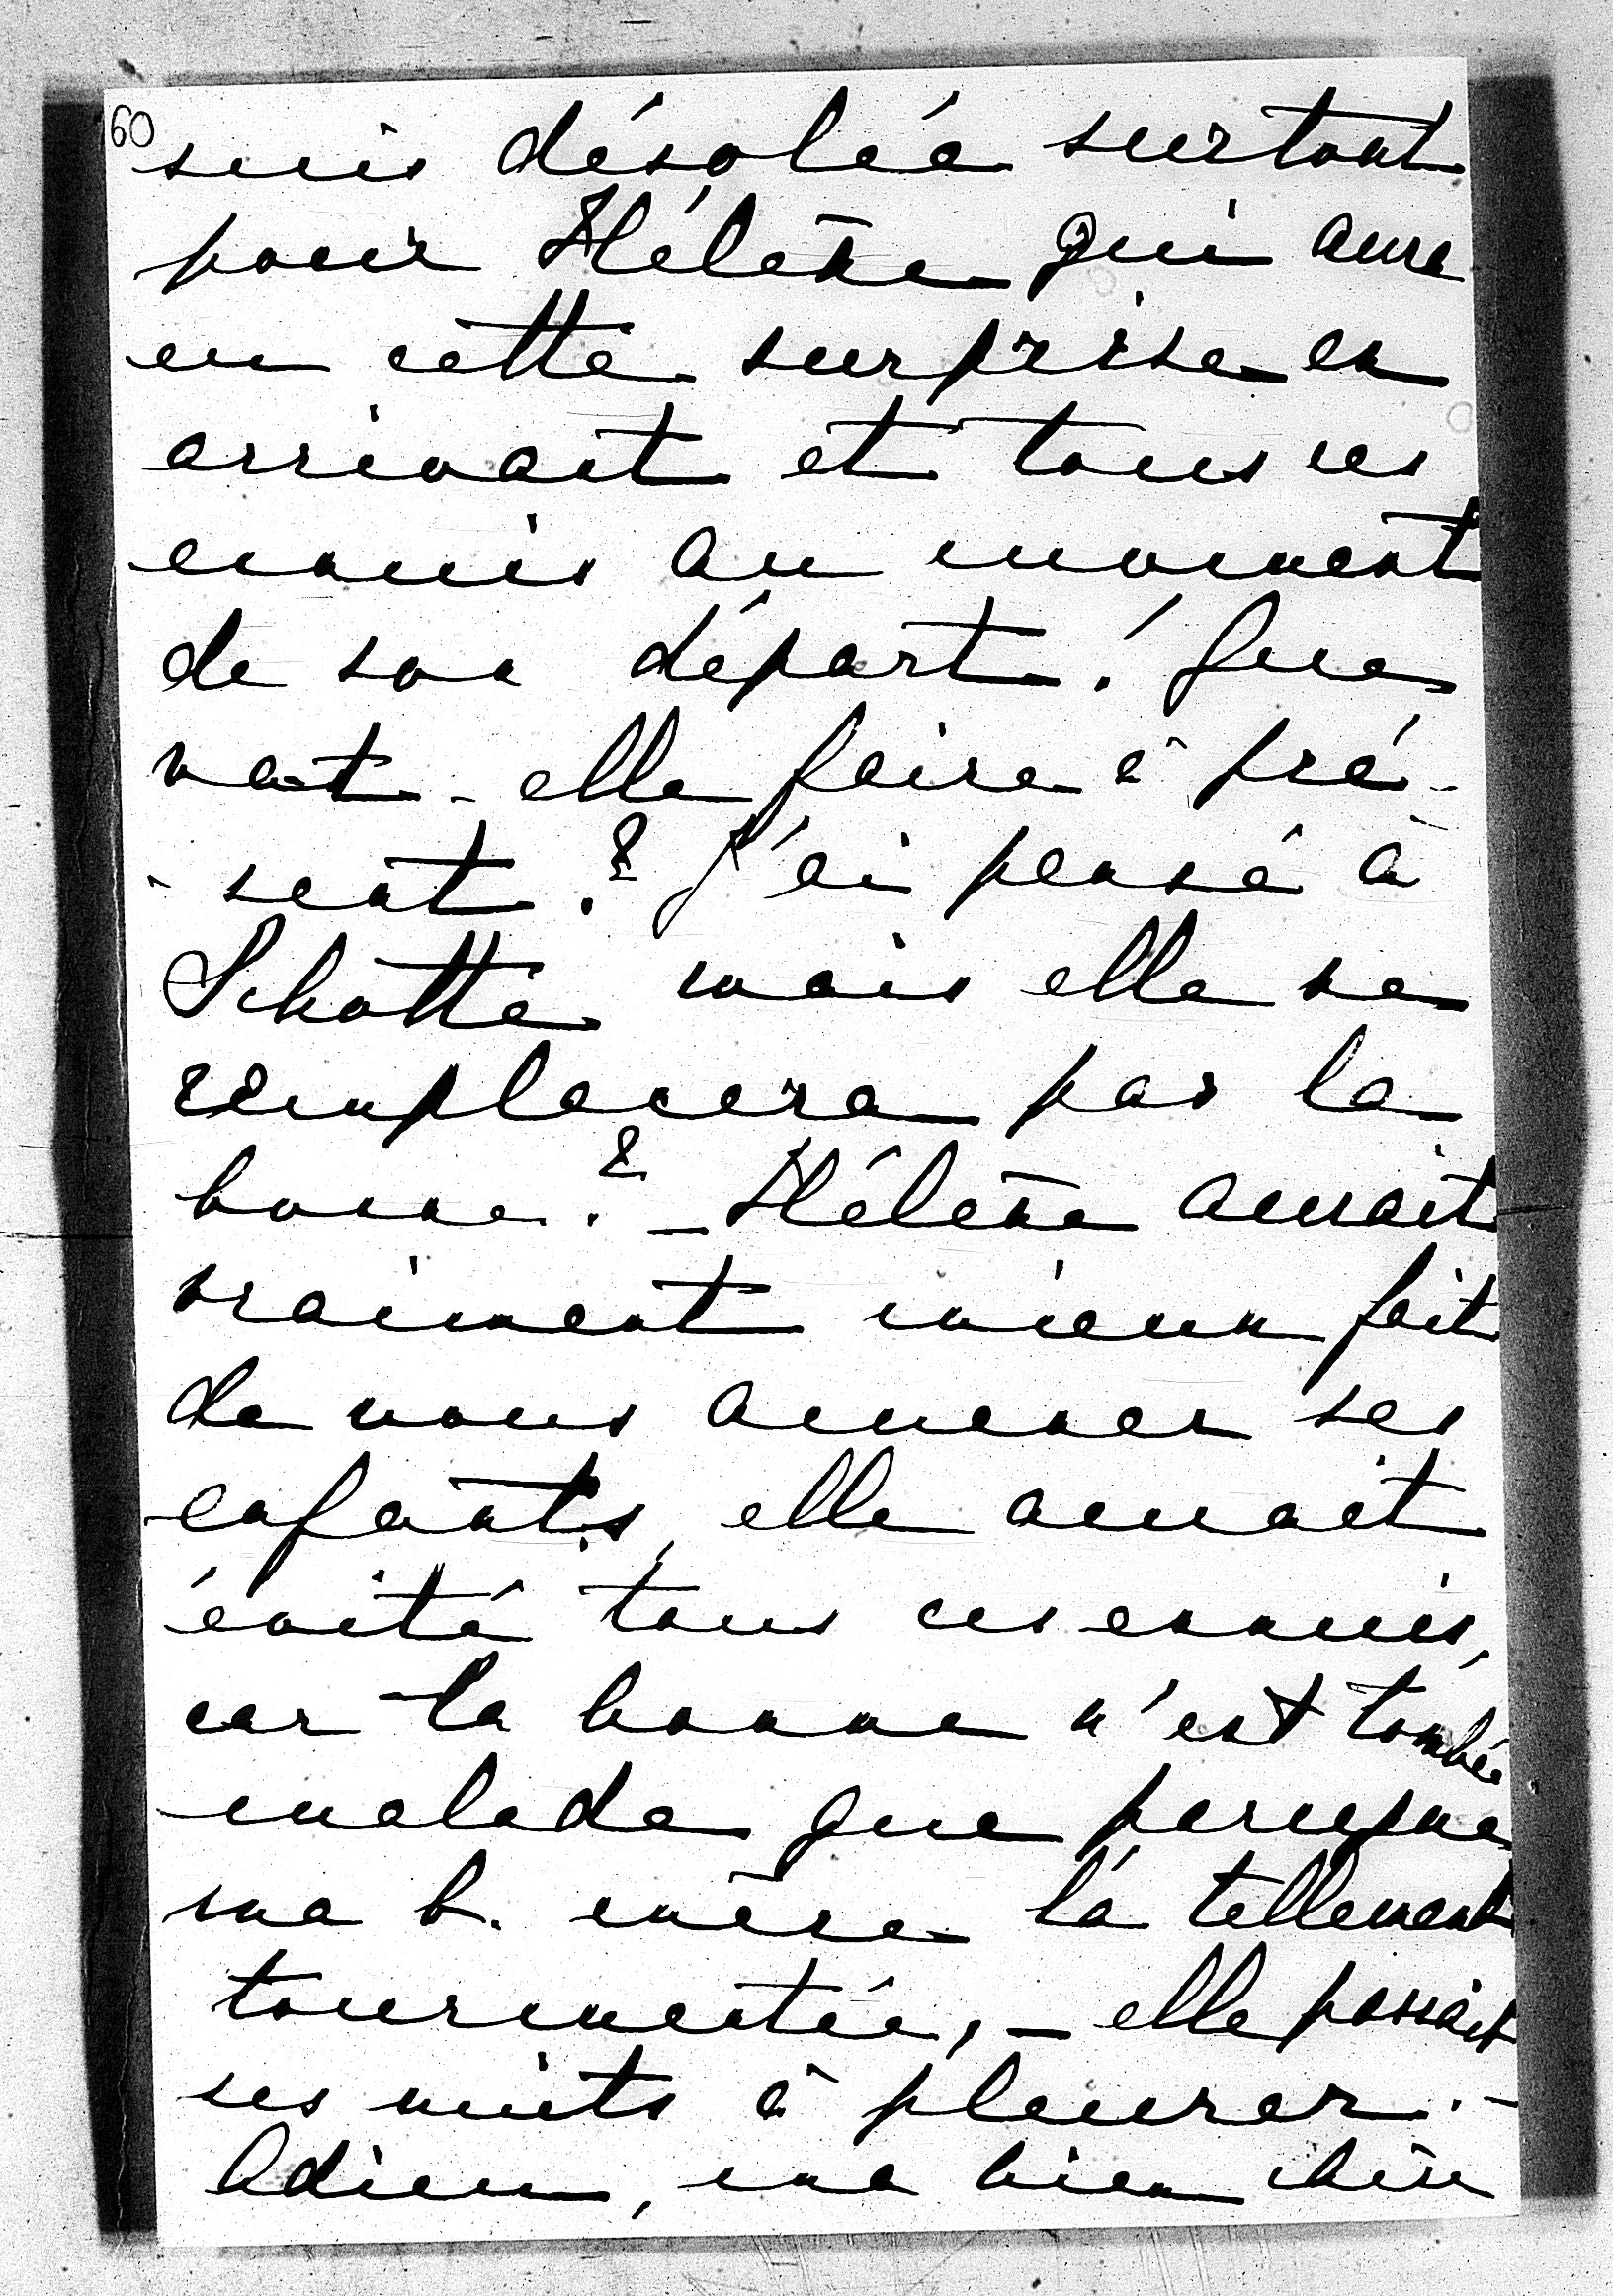 60
suis désolée surtout
pour Hélène qui aura
eu cette surprise en
arrivant et tous ces
ennuis au moment
de son départ! Que
vat-elle faire à pré-
-sent? J'ai pensé à
Schotte mais elle ne
remplacera pas la
bonne? – Hélène aurait
vraiment mieux fait
de nous amener ses
enfants, elle aurait
évité tous ces ennuis,
car la bonne n'est tombée
malade que parceque
ma b. mère l'a tellement
tourmentée, – elle passait
ses nuits à pleurer. –
Adieu, ma bien chère